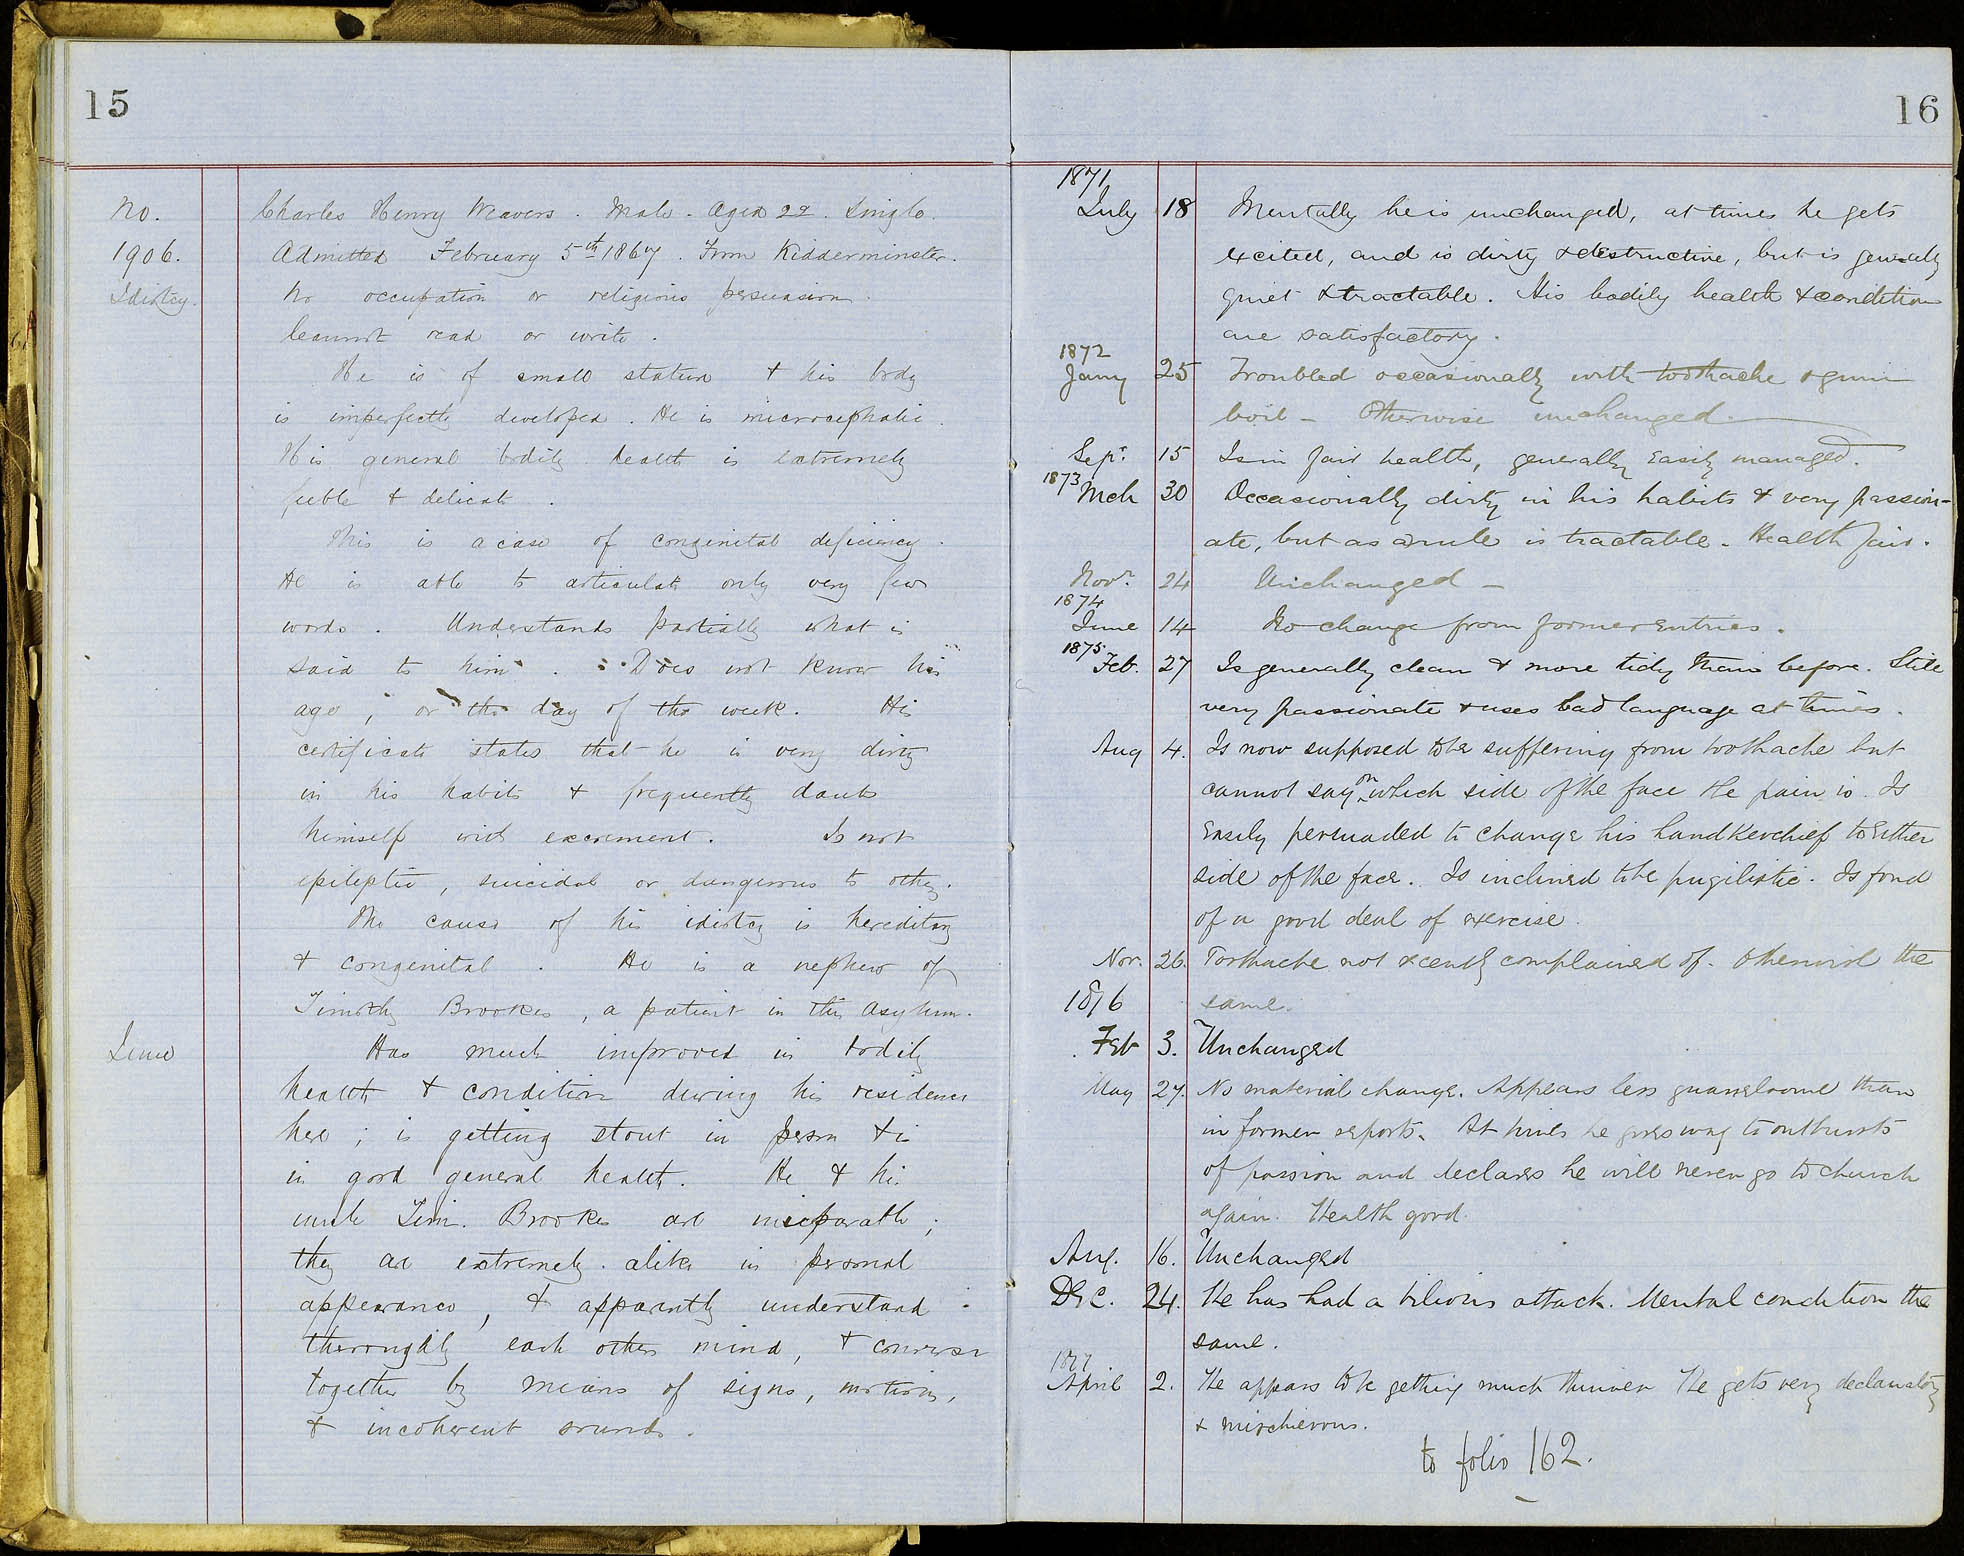 15
No.
1906.
Idiotcy.
Charles Henry Weavers. Male. Aged 22. Single.
Admitted February 5th 1867. From Kidderminster.
No occupation or religious persuasion.
Cannot read or write.
He is of small stature & his body
is imperfectly developed. He is microcephalic.
His general bodily health is extremely
feeble & delicate.
This is a case of congenital deficiency.
He is able to articulate only very few
words. Understands partially what is
said to him. Does not know his
age, or the day of the week. His
certificate states that he is very dirty
in his habits & frequently daubs
himself with excrement. Is not
epileptic, suicidal or dangerous to others.
The cause of his idiotcy is hereditary
& congenital. He is a nephew of
Timothy Brookes, a patient in this Asylum.
Has much improved in bodily
health & condition during his residence
here; is getting stout in person & is
in good general health. He & his
uncle Tim. Brookes are inseparable;
they are extremely alike in personal
appearance, & apparently understand
thoroughly each others mind, & converse
together by means of signs, motions,
& incoherent sounds.
16
1871
July 18 Mentally he is unchanged, at times he gets
excited, and is dirty & destructive, but is generally
quiet & tractable. His bodily health & condition
are satisfactory.
1872
Jany 25 Troubled occasionally with toothache & gum
boil - Otherwise unchanged.
Sepr. 15 Is in fair health, generally easily managed.
1873
Mch 30 Occasionally dirty in his habits & very passion-
ate, but as a rule is tractable. Health fair.
Novr. 24 Unchanged -
1874
June 14 No change from former entries.
1875
Feb. 27 Is generally clean & more tidy than before. Still
very passionate & uses bad language at times.
Aug 4. Is now supposed to be suffering from toothache but
cannot say on which side of the face the pain is. Is
easily persuaded to change his handkerchief to either
side of the face. Is inclined to be pugilistic. Is fond
of a good deal of exercise.
Nov. 26. Toothache not recently complained of. Otherwise the
1876 same.
Feb 3. Unchanged
May 27. No material change. Appears less quarrelsome than
in former reports. At times he gives way to outbursts
of passion and declares he will never go to church
again. Health good.
Aug. 16. Unchanged
Dec. 24. He has had a bilious attack. Mental condition the
same.
1877
April 2. He appears to be getting much thinner He gets very declamatory
& mischievous.
to folio 162.